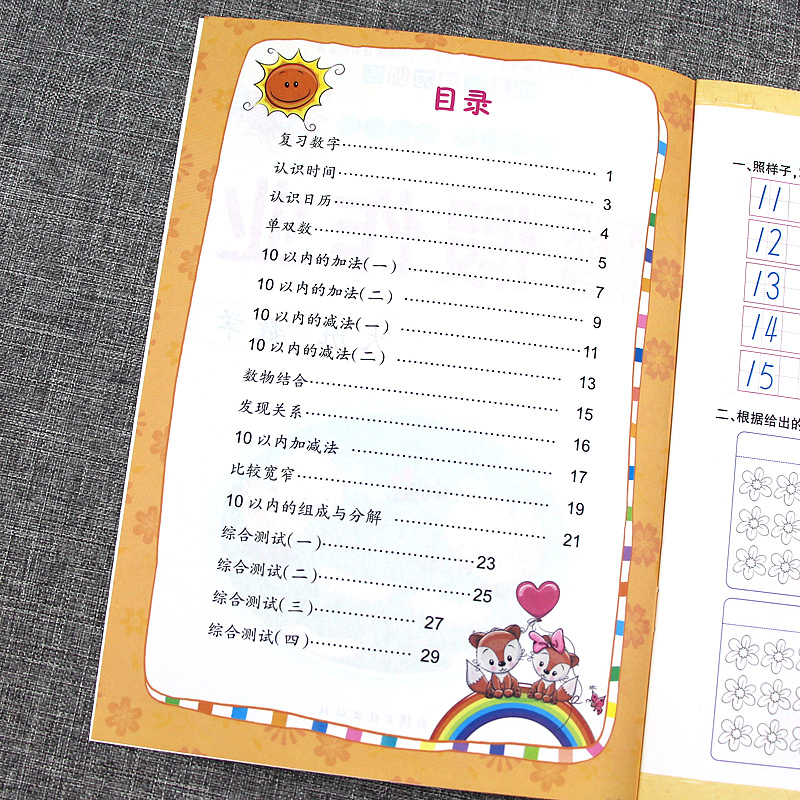 目录
复习数字 1
认识时间 3
认识日历 4
单双数 5
10以内的加法(一) 7
10以内的加法(二) 9
10以内的减法(一) 11
10以内的减法(二) 13
数物结合 15
发现关系 16
10以内加减法 17
比较宽窄 19
10以内的组成与分解 21
综合测试(一) 23
综合测试(二) 25
综合测试(三) 27
综合测试(四) 29
一、照样子,
11
12
13
14
15
二、根据给出的